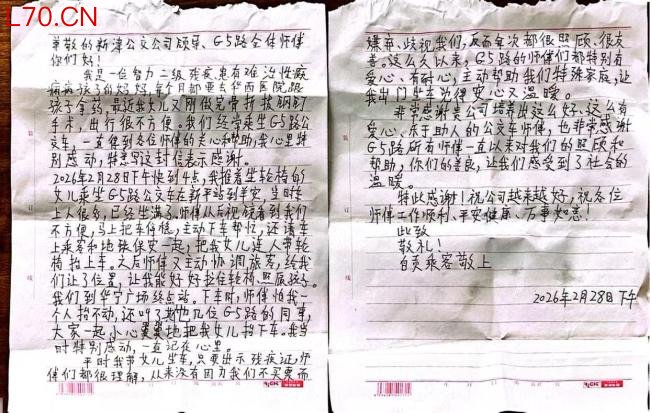 L70.CN
尊敬的新津公交公司领导、G5路全体师傅
你们好！
我是一位智力二级残疾患有难治性癫
痫病孩子的妈妈，每个月都要去华西医院跟
孩子拿药，最近我女儿又刚做完骨折拆钢钉
手术，出行很不方便。我们经常乘坐G5路公
交车，一直得到各位师傅的关心和帮助，我心里特
别感动，特意写这封信表示感谢。
2026年2月28日下午快到4点，我推着坐轮椅的
女儿乘坐G5路公交车在新平站到羊安，当时车
上人很多，已经坐满了。师傅从后视镜看到我们
不方便，马上把车停稳，主动下车帮忙，还请车
上乘客和地铁保安一起，把我女儿连人带轮
椅抬上车。之后师傅又主动协调旅客，给我
们让了位置，让我能好好扶住轮椅、照顾孩子。
我们到华宁广场终点站。下车时，师傅怕我一
个人抬不动，还叫了其他几位G5路的同事，
大家一起小心翼翼地把我女儿抬下车。我当
时特别感动，一直记在心里。
平时我带女儿坐车，只要出示残疾证，师
傅们都很理解，从来没有因为我们不买票而
嫌弃、歧视我们，反而每次都很照顾、很友
善。这么久以来，G5路的师傅们都特别有
爱心、有耐心，主动帮助我们特殊家庭，让
我出门坐车觉得安心又温暖。
非常感谢贵公司培养出这么好、这么有
爱心、乐于助人的公交车师傅，也非常感谢
G5路所有师傅一直以来对我们的照顾和
帮助，你们的善良，让我们感受到了社会的
温暖。
特此感谢！祝公司越来越好，祝各位
师傅工作顺利、平安健康、万事如意！
此致
敬礼！
乘客敬上
2026年2月28日下午